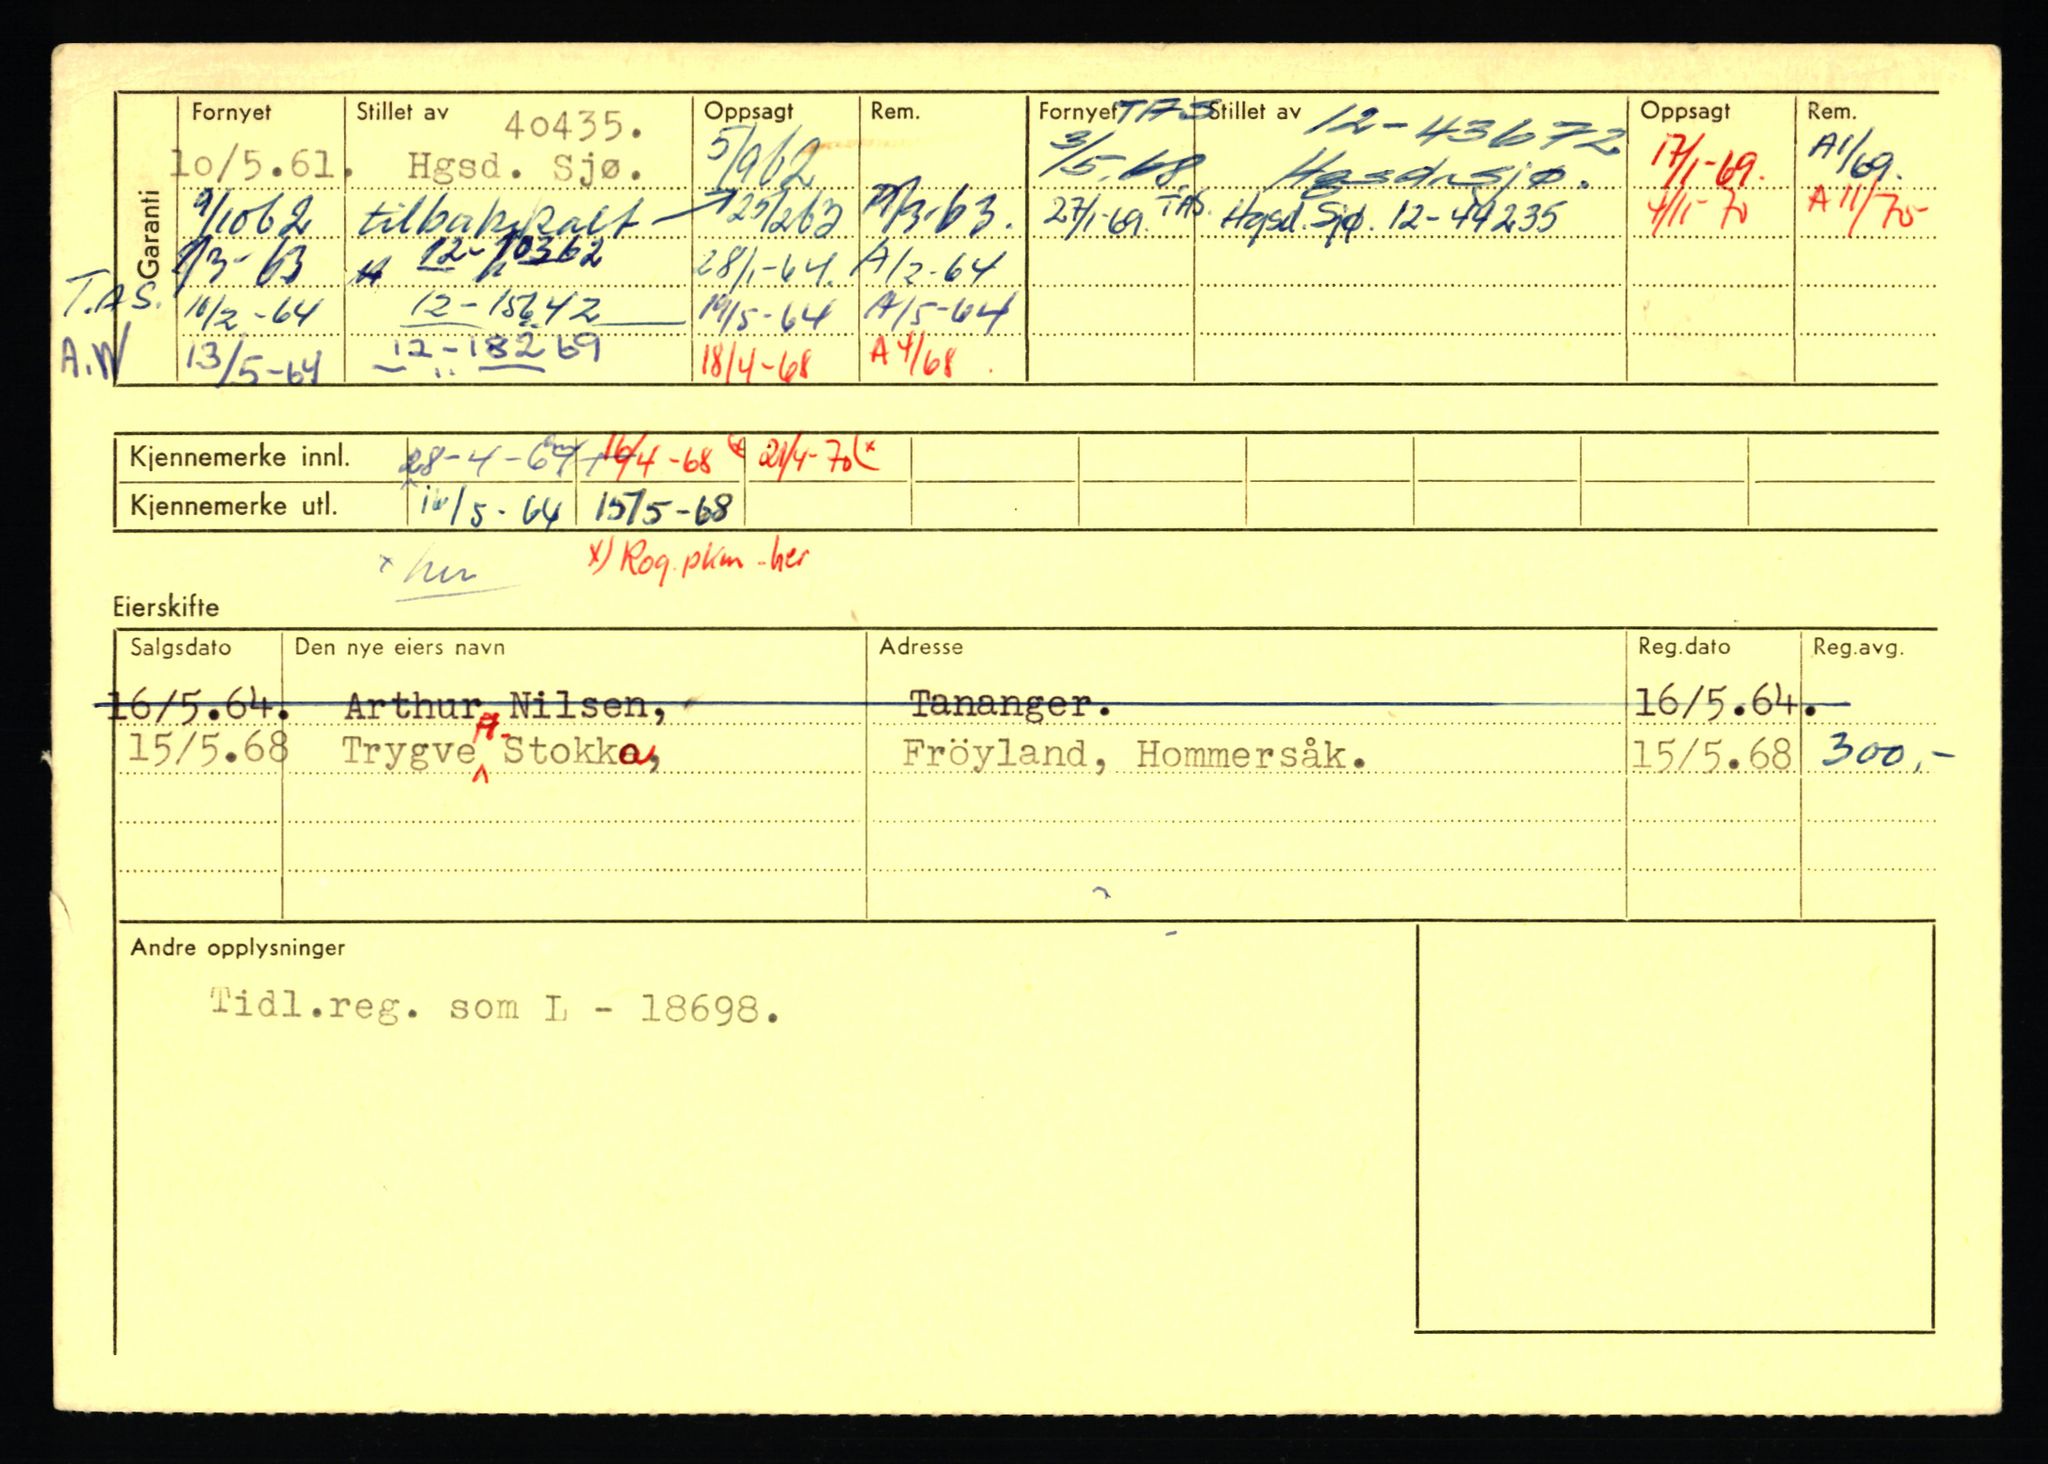 Garanti
Fornyet Stillet av Oppsagt Rem. Fornyet TAS Stillet av Oppsagt Rem.
40435. 12-43672
10/5.61. Hgsd. Sjø. 5/962 3/5.68 Hgsd. Sjø. 17/1-69. A1/69.
9/1062 tilbakekalt 25/263 27/1-69. TAS. Hgsd. Sjø. 12-44235 4/11-70 A11/70
1/3-63 12-10362 28/1-64. A/2-64
T.AS. 10/2-64 12-15642 19/5-64 A/5-64
A.W 13/5-64 12-18269 18/4-68 A4/68
Kjennemerke innl. 28-4-64 16/4-68 21/4-70 x
Kjennemerke utl. 16/5-64 15/5-68
x her x) Rog.pkm-her
Eierskifte
Salgsdato Den nye eiers navn Adresse Reg.dato Reg.avg.
16/5.64. Arthur Nilsen, Tananger. 16/5.64.
15/5.68 Trygve A. Stokka, Fröyland, Hommersåk. 15/5.68 300,-
Andre opplysninger
Tidl.reg. som L - 18698.